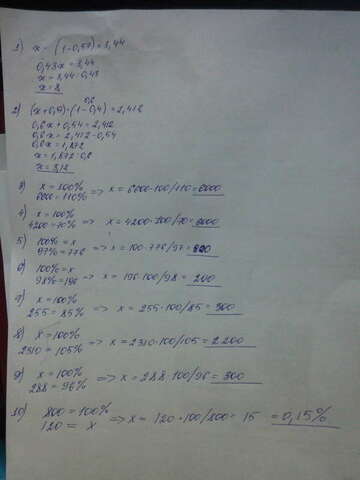 1) x - (1-0,57)=3,44
0,43x = 3,44
x = 3,44 : 0,43
x = 8
2) (x+0,9)·(1-0,4)=2,412
0,6
0,6x+0,54=2,412
0,6x = 2,412-0,54
0,6x = 1,872
x = 1,872:0,6
x = 3,12
3) x = 100%
6600=110% => x = 6600·100/110=6000
4) x = 100%
4200=70% => x = 4200·100/70=6000
5) 100% = x
97% = 776 => x = 100·776/97=800
6) 100% = x
98% = 196 => x = 196·100/98 = 200
7) x = 100%
255=85% => x = 255·100/85=300
8) x = 100%
2310=105% => x=2310·100/105=2200
9) x = 100%
288=96% => x=288·100/96=300
10) 800=100%
120 = x => x = 120·100/800= 15 = 0,15%